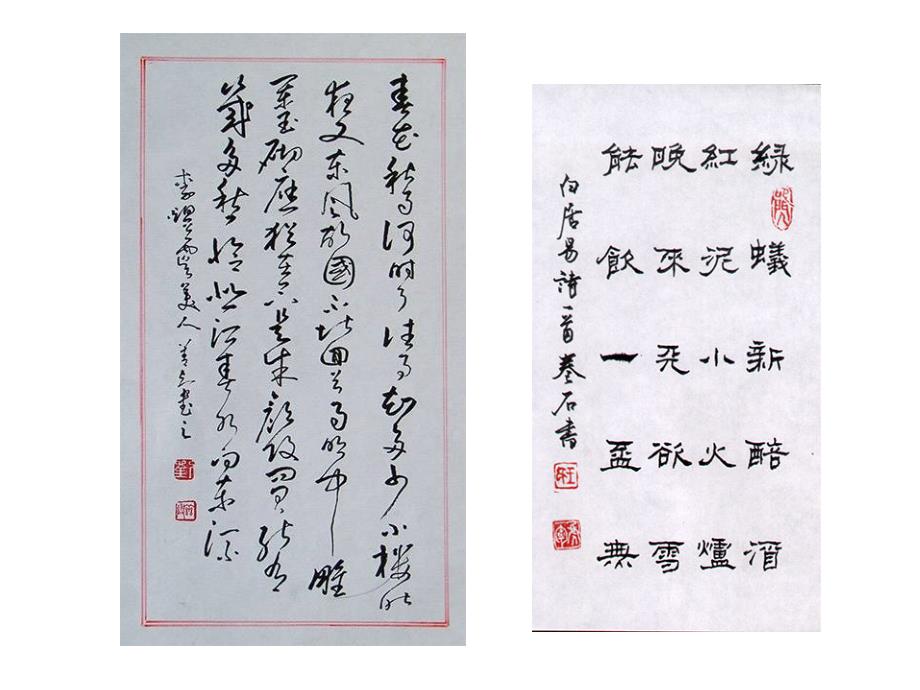 春花秋月何时了往事知多少小楼昨
夜又东风故國不堪回首月明中雕
闌玉砌應猶在只是朱顏改問君能有
幾多愁恰似江春水向東流
李煜虞美人 書之
綠蟻新醅酒
紅泥小火爐
晚來天欲雪
能飲一盃無
白居易詩一首 石書